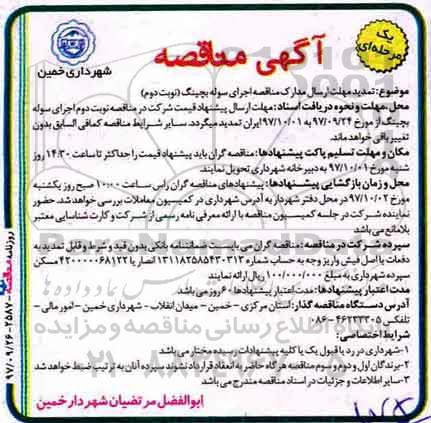 یک
مرحله‌ای
آگهی مناقصه
شهرداری خمین
موضوع: تمدید مهلت ارسال مدارک مناقصه اجرای سوله بچینگ (نوبت دوم)
محل، مهلت و نحوه دریافت اسناد: مهلت ارسال پیشنهاد قیمت شرکت در مناقصه نوبت دوم اجرای سوله
بچینگ از مورخ ۹۷/۰۹/۲۴ به ۹۷/۱۰/۰۱ ایران تمدید میگردد. سایر شرایط مناقصه کمافی السابق بدون
تغییر باقی خواهد ماند.
مکان و مهلت تسلیم پاکت پیشنهادها: مناقصه گران باید پیشنهاد قیمت را حداکثر تا ساعت ۱۴:۳۰ روز
شنبه مورخ ۹۷/۱۰/۰۱ به دبیرخانه شهرداری تحویل نمایند.
محل و زمان بازگشایی پیشنهادها: پیشنهادهای مناقصه گران راس ساعت ۱۰:۰۰ صبح روز یکشنبه
مورخ ۹۷/۱۰/۰۲ در محل دفتر شهردار به آدرس شهرداری در کمیسیون معاملات بررسی خواهد شد. حضور
نماینده شرکت در جلسه کمیسیون مناقصه با ارائه معرفی نامه رسمی از شرکت و کارت شناسایی معتبر
بلامانع می باشد
سپرده شرکت در مناقصه: مناقصه گران می بایست ضمانتنامه بانکی بدون قید و شرط و قابل تمدید به
دفعات یا اصل فیش واریز وجه به حساب شماره ۱۳۱۱۸۲۵۸۵۴۳۰۳۱۲ انصار یا ۴۲۰۰۰۰۰۶۸۱۲۲ مسکن
سپرده شهرداری به مبلغ ۱۰۰/۰۰۰/۰۰۰ ریال ارائه نمایند
مدت اعتبار پیشنهادها: مدت اعتبار پیشنهادها ۶۰ روز می باشد
آدرس دستگاه مناقصه گذار: استان مرکزی - خمین - میدان انقلاب - شهرداری خمین - امور مالی -
تلفکس ۴۶۲۲۳۳۰۵-۰۸۶
شرایط اختصاصی:
۱-شهرداری در رد یا قبول یک یا کلیه پیشنهادات در هر زمان مختار می باشد
۲-برندگان اول و دوم و سوم مناقصه هر گاه حاضر به انعقاد قرارداد نشوند سپرده آنان به ترتیب ضبط خواهد شد
۳-سایر اطلاعات و جزئیات در اسناد مناقصه مندرج می باشد
ابوالفضل مرتضیان شهردار خمین
روزنامه مناقصه ۲۵۸۷ - ۹۷/۰۹/۲۶